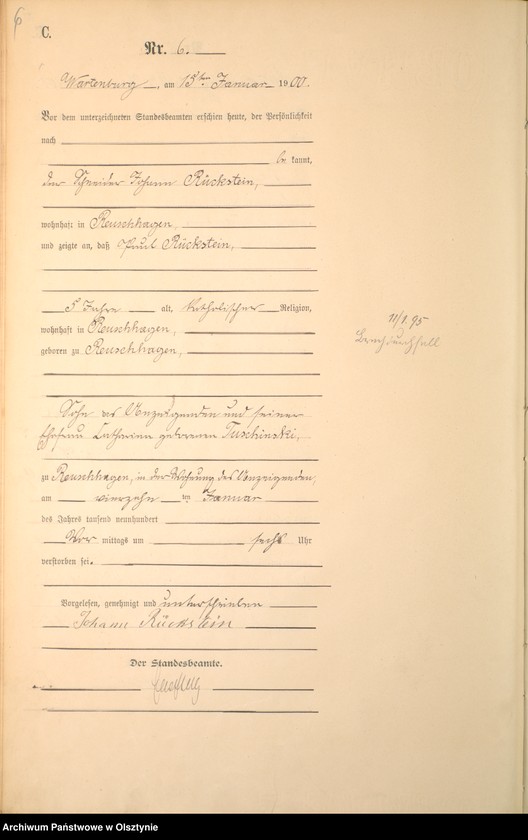 6
C.
Nr. 6.
Wartenburg, am 15ten Januar 1900.
Vor dem unterzeichneten Standesbeamten erschien heute, der Persönlichkeit
nach
be kannt,
der Schneider Johann Rückstein,
wohnhaft in Reuschhagen,
und zeigte an, daß Paul Rückstein,
5 Jahre alt, katholischer Religion,
wohnhaft in Reuschhagen,
geboren zu Reuschhagen,
11/1. 95
Brechdurchfall
Sohn des Anzeigenden und seiner
Ehefrau Catharina geborenen Tuschinski,
zu Reuschhagen, in der Wohnung des Anzeigenden,
am vierzehn ten Januar
des Jahres tausend neunhundert
Vor mittags um sechs Uhr
verstorben sei.
Vorgelesen, genehmigt und unterschrieben
Johann Rückstein
Der Standesbeamte.
Archiwum Państwowe w Olsztynie